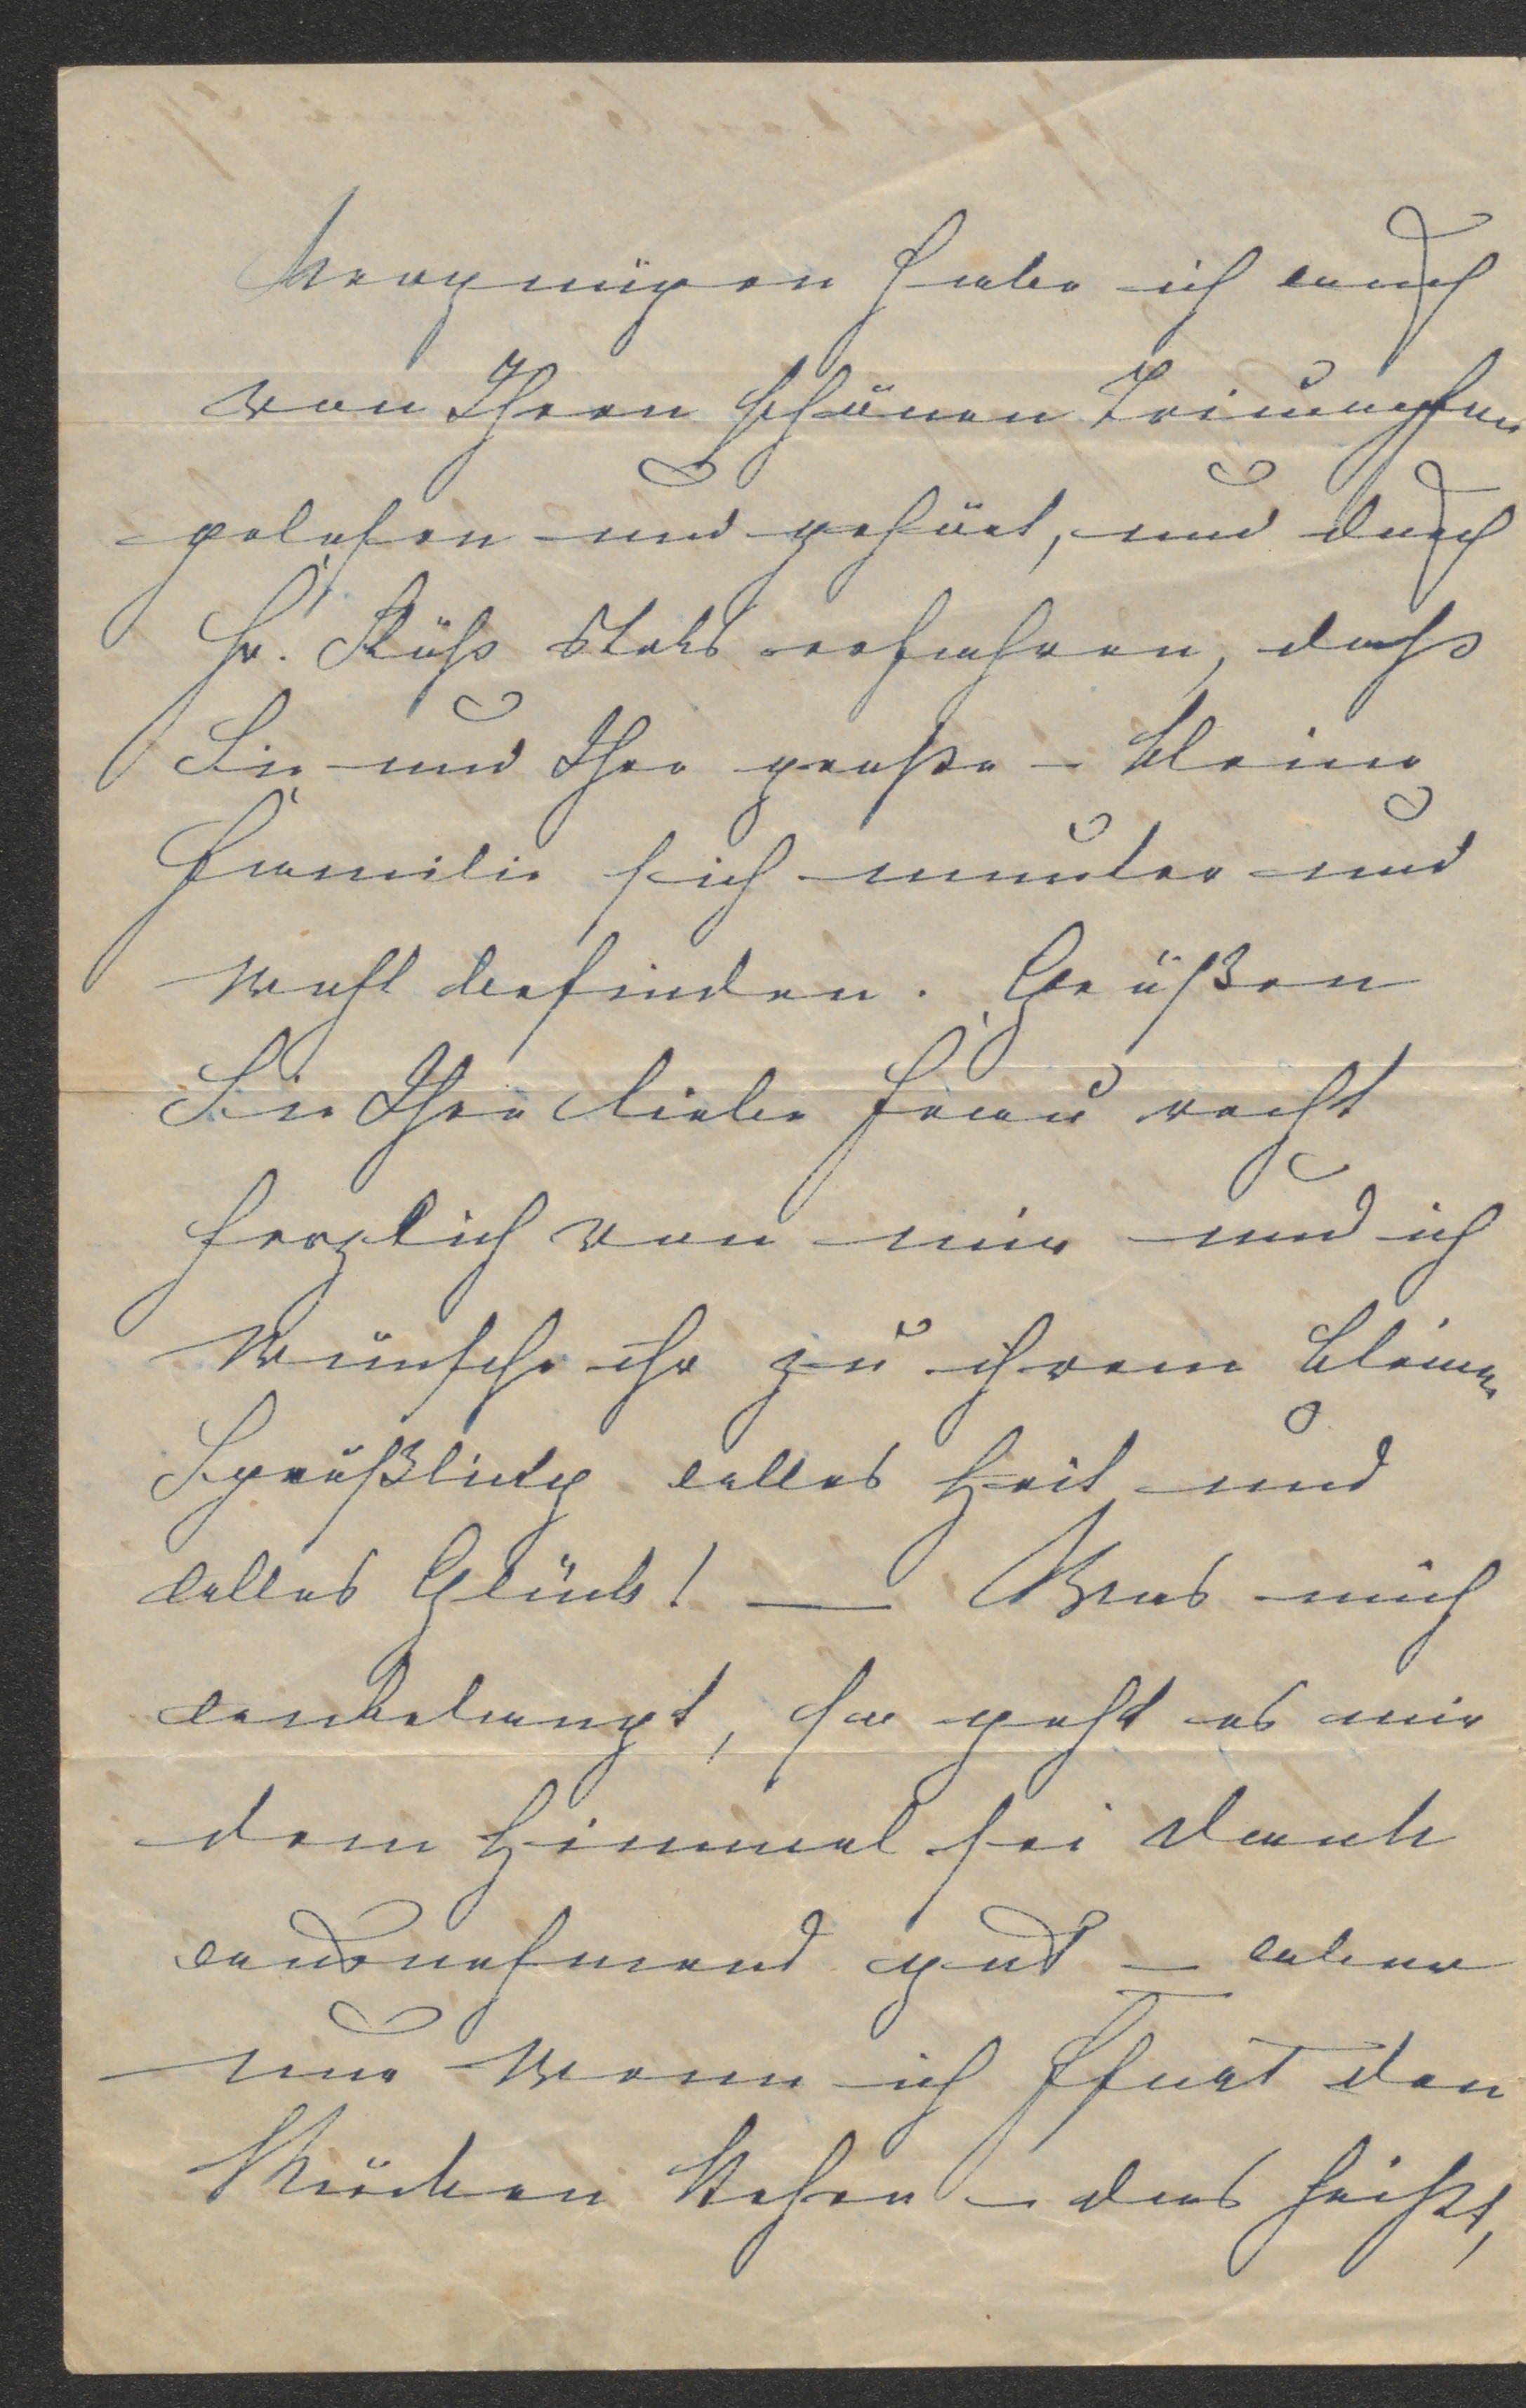 Vergnügen habe ich auch
von Ihren schönen Triumphen
gelesen und gehört, und durch
Hr. stets erfahren, dass
Sie und Ihre große – kleine
Familie sich munter und
wohl befinden. Grüßen
Sie Ihre liebe Frau recht
herzlich von mir und ich
wünsche ihr zu ihrem kleinen
Sprößling alles Heil und
alles Glück! — Was mich
anbelangt, so geht es mir
dem Himmel sei Dank
ausnehmend gut – aber
nur wenn ich den
Rücken kehre – das heißt,